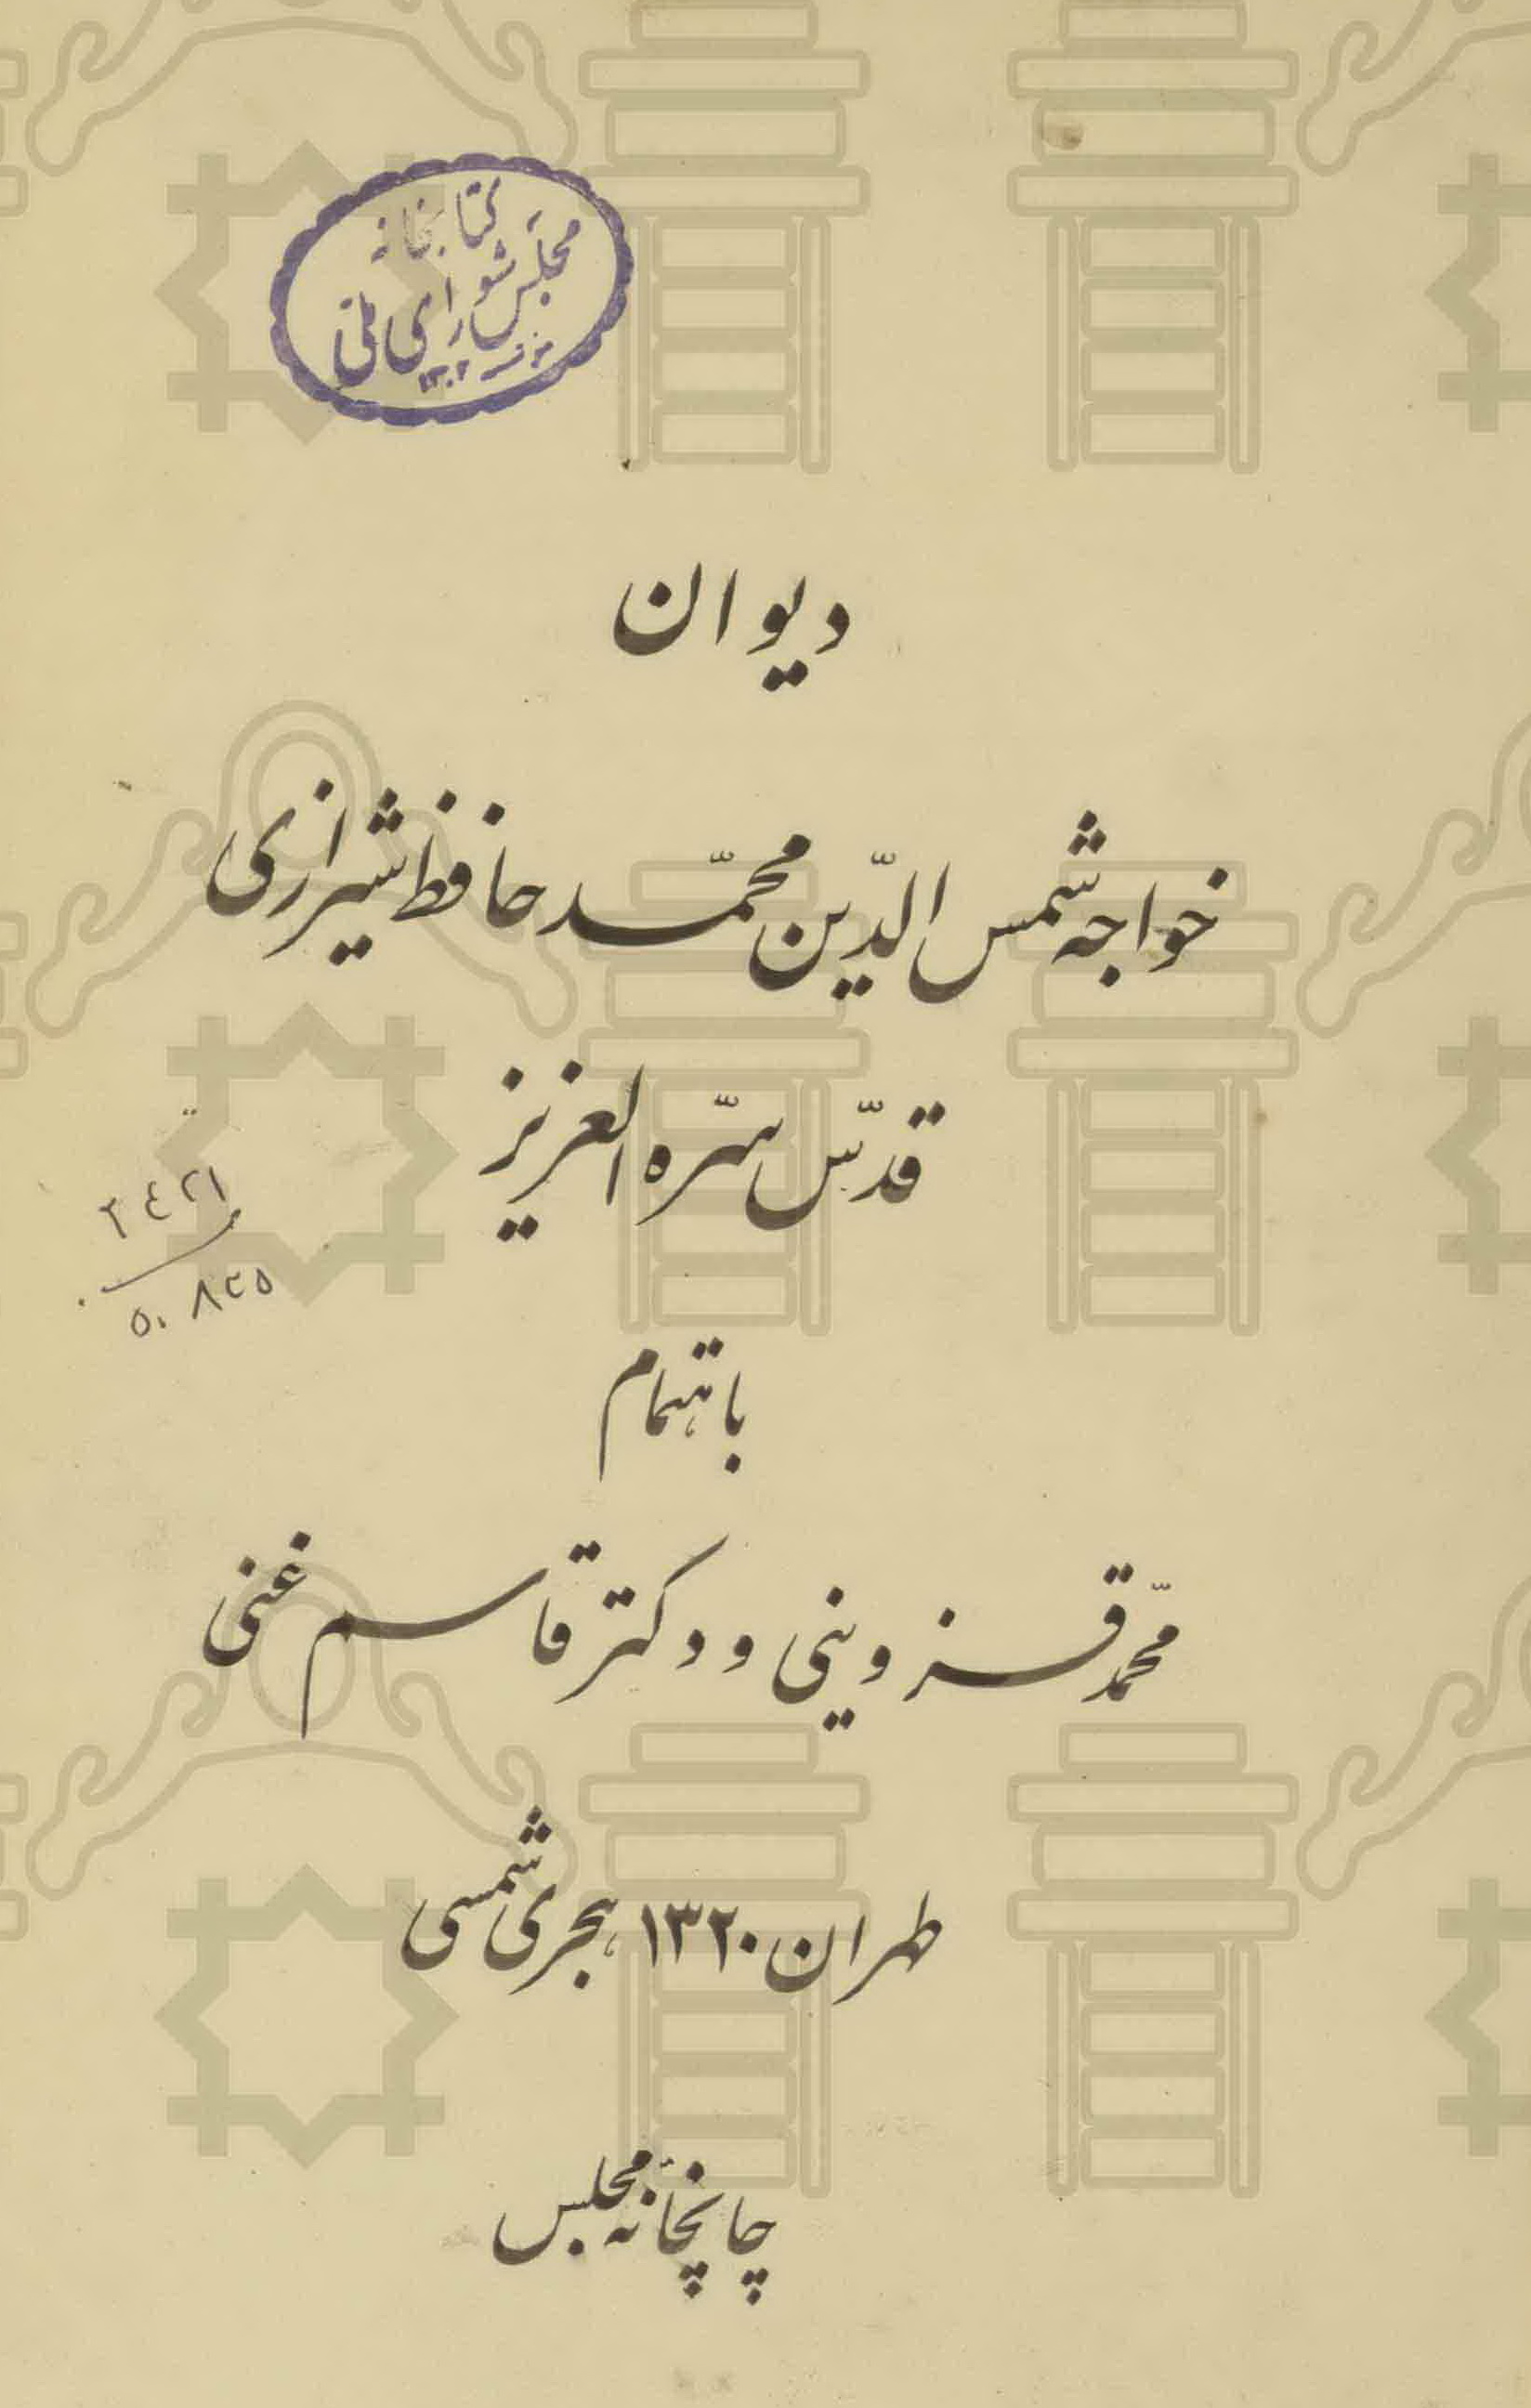 کتابخانه
مجلس شورای ملی
دیوان
خواجه شمس الدّین محمّد حافظ شیرازی
قدّس سرّه العزیز
باهتمام
محمّد قزوینی و دکتر قاسم غنی
طهران ۱۳۲۰ هجری شمسی
چاپخانهٔ مجلس